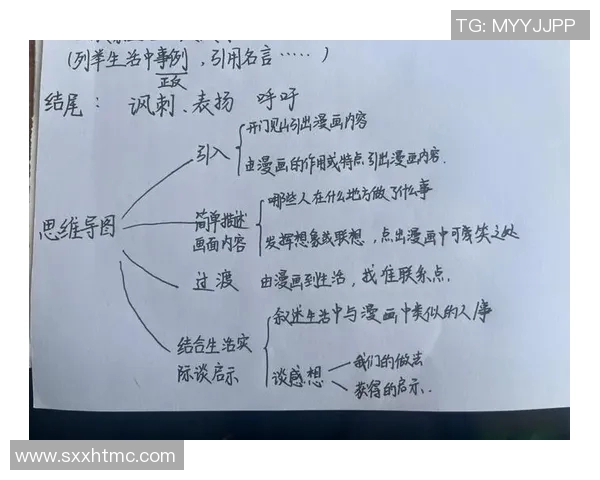 TG: MYYJJPP
(列举生活中事例，引用名言……)
正反
结尾： 讽刺、表扬 呼吁
思维导图
引入
开门见山引出漫画内容
由漫画的作用或特点引出漫画内容.
简单描述
画面内容
哪些人在什么地方做了什么事
发挥想象或联想，点出漫画中可笑之处
过渡 由漫画到生活，找准联系点.
结合生活实
际谈启示
叙述生活中与漫画中类似的人事
谈感想
我们的做法
获得的启示.
www.sxxhtmc.com